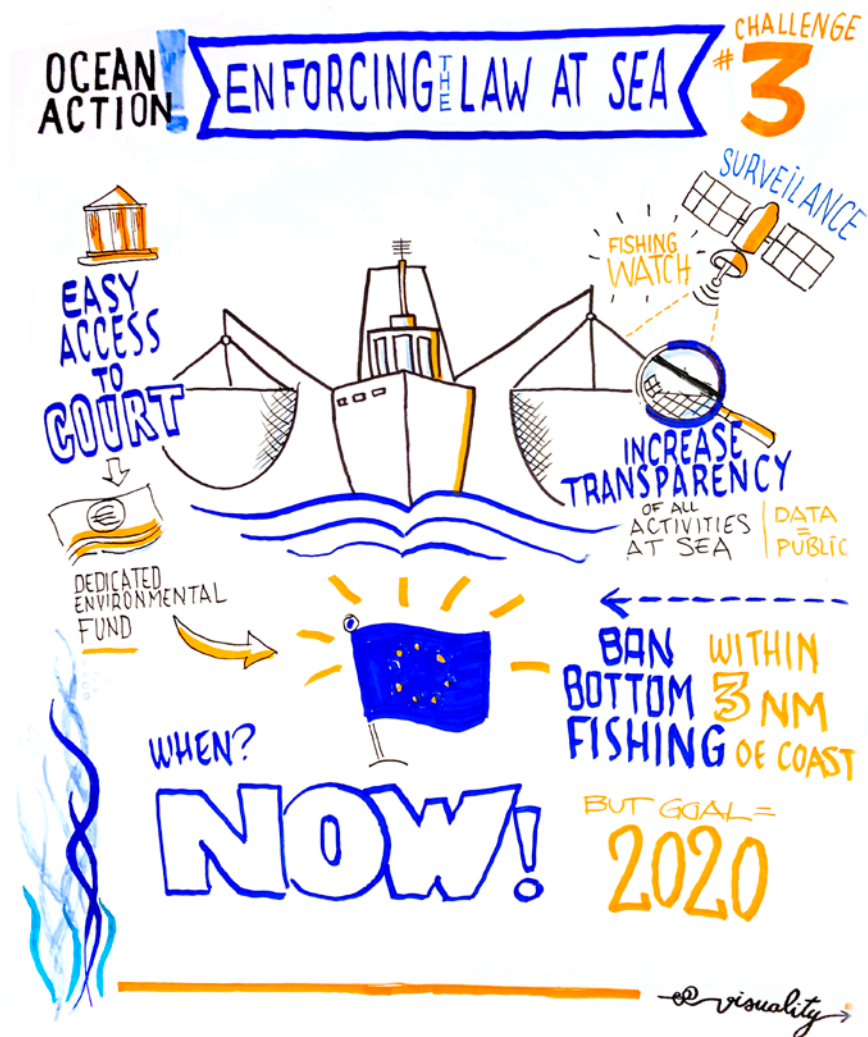 OCEAN
ACTION!
ENFORCING THE LAW AT SEA
CHALLENGE
#3
SURVEILANCE
FISHING
WATCH
EASY
ACCESS
TO
COURT
INCREASE
TRANSPARENCY
OF ALL
ACTIVITIES
AT SEA
DATA
=
PUBLIC
€
DEDICATED
ENVIRONMENTAL
FUND
BAN
BOTTOM
FISHING
WITHIN
3 NM
OF COAST
WHEN?
NOW!
BUT GOAL =
2020
visuality